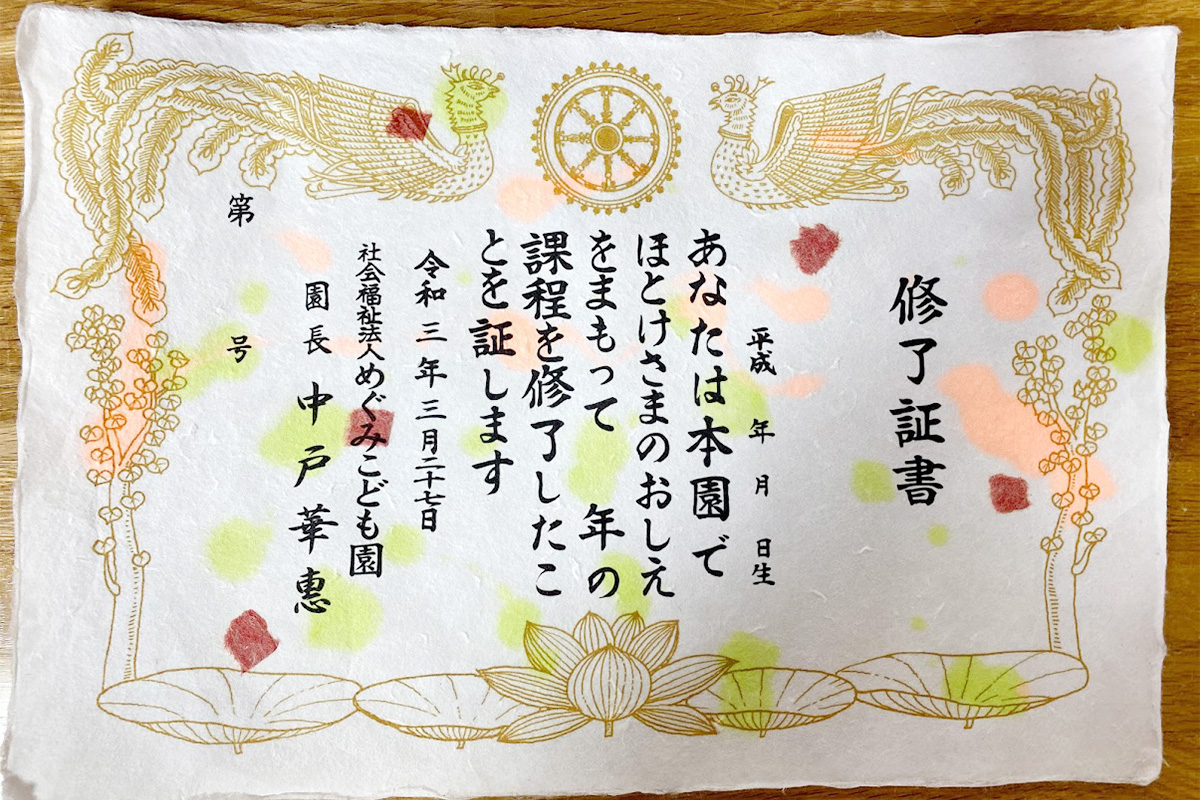 修了証書
平成　年　月　日生
あなたは本園で
ほとけさまのおしえ
をまもって　年の
課程を修了したこ
とを証します
令和三年三月二十七日
社会福祉法人めぐみこども園
園長　中戸華恵
第　号